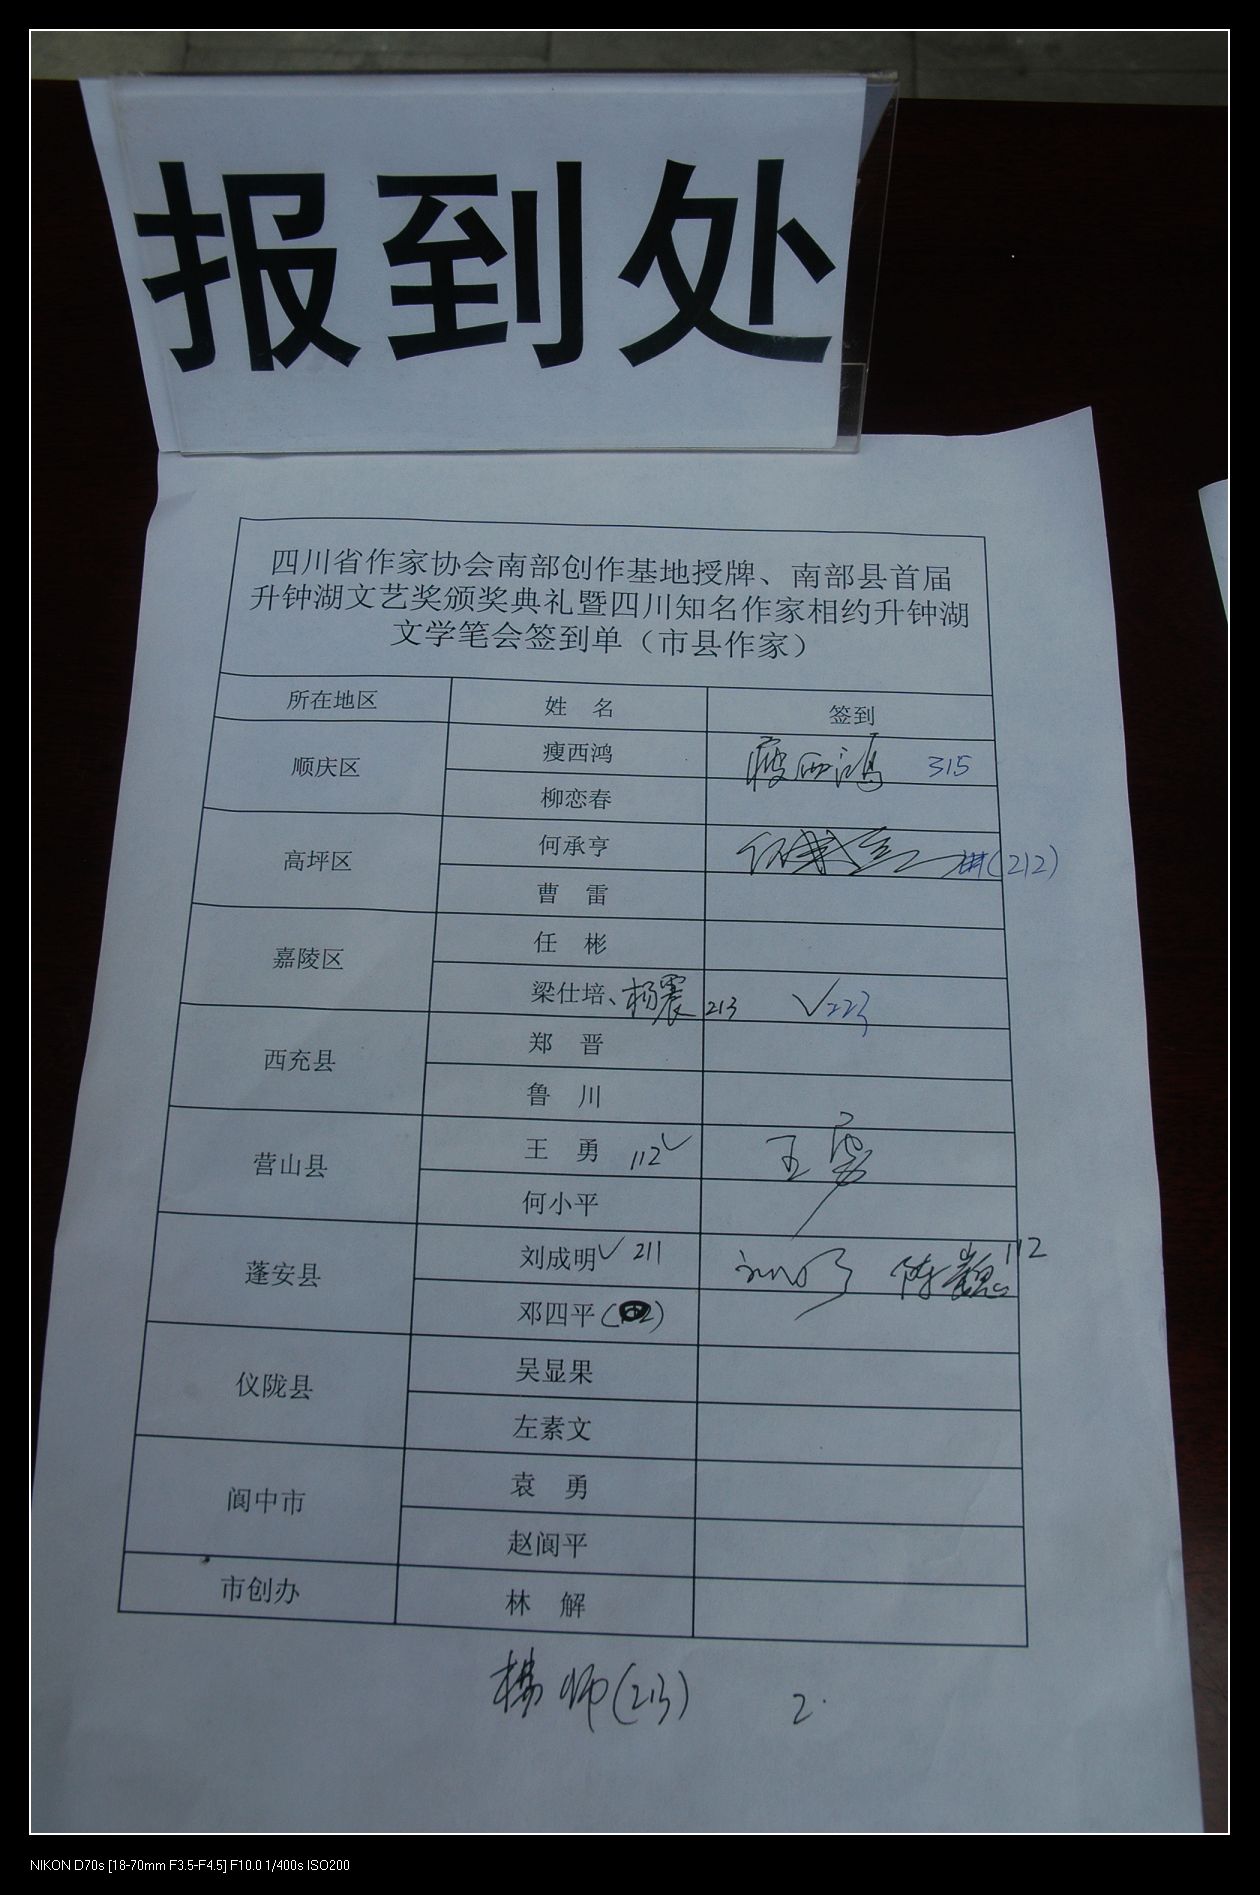 报到处
四川省作家协会南部创作基地授牌、南部县首届
升钟湖文艺奖颁奖典礼暨四川知名作家相约升钟湖
文学笔会签到单（市县作家）
所在地区 姓 名 签到
顺庆区 瘦西鸿 瘦西鸿 315
柳恋春
高坪区 何承亨 (212)
曹 雷
嘉陵区 任 彬
梁仕培、杨震 213 √223
西充县 郑 晋
鲁 川
营山县 王 勇 112√ 王勇
何小平
蓬安县 刘成明√ 211 112
邓四平
仪陇县 吴显果
左素文
阆中市 袁 勇
赵阆平
市创办 林 解
杨师(213) 2.
NIKON D70s [18-70mm F3.5-F4.5] F10.0 1/400s ISO200